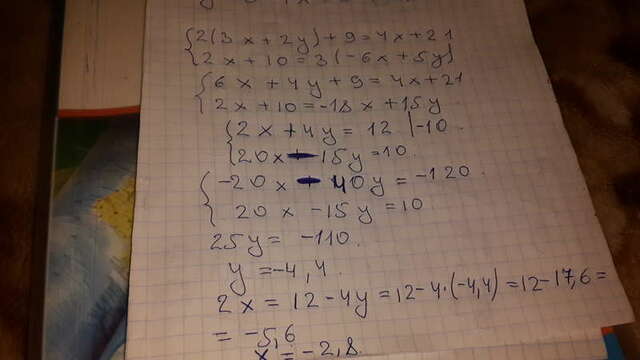 {2(3x+2y)+9=4x+21
2x+10=3(-6x+5y)
{6x+4y+9=4x+21
2x+10=-18x+15y
{2x+4y=12 |-10.
20x-15y=10.
{-20x-40y=-120.
20x-15y=10
25y=-110.
y=-4,4.
2x=12-4y=12-4·(-4,4)=12-17,6=
=-5,6
x=-2,8.